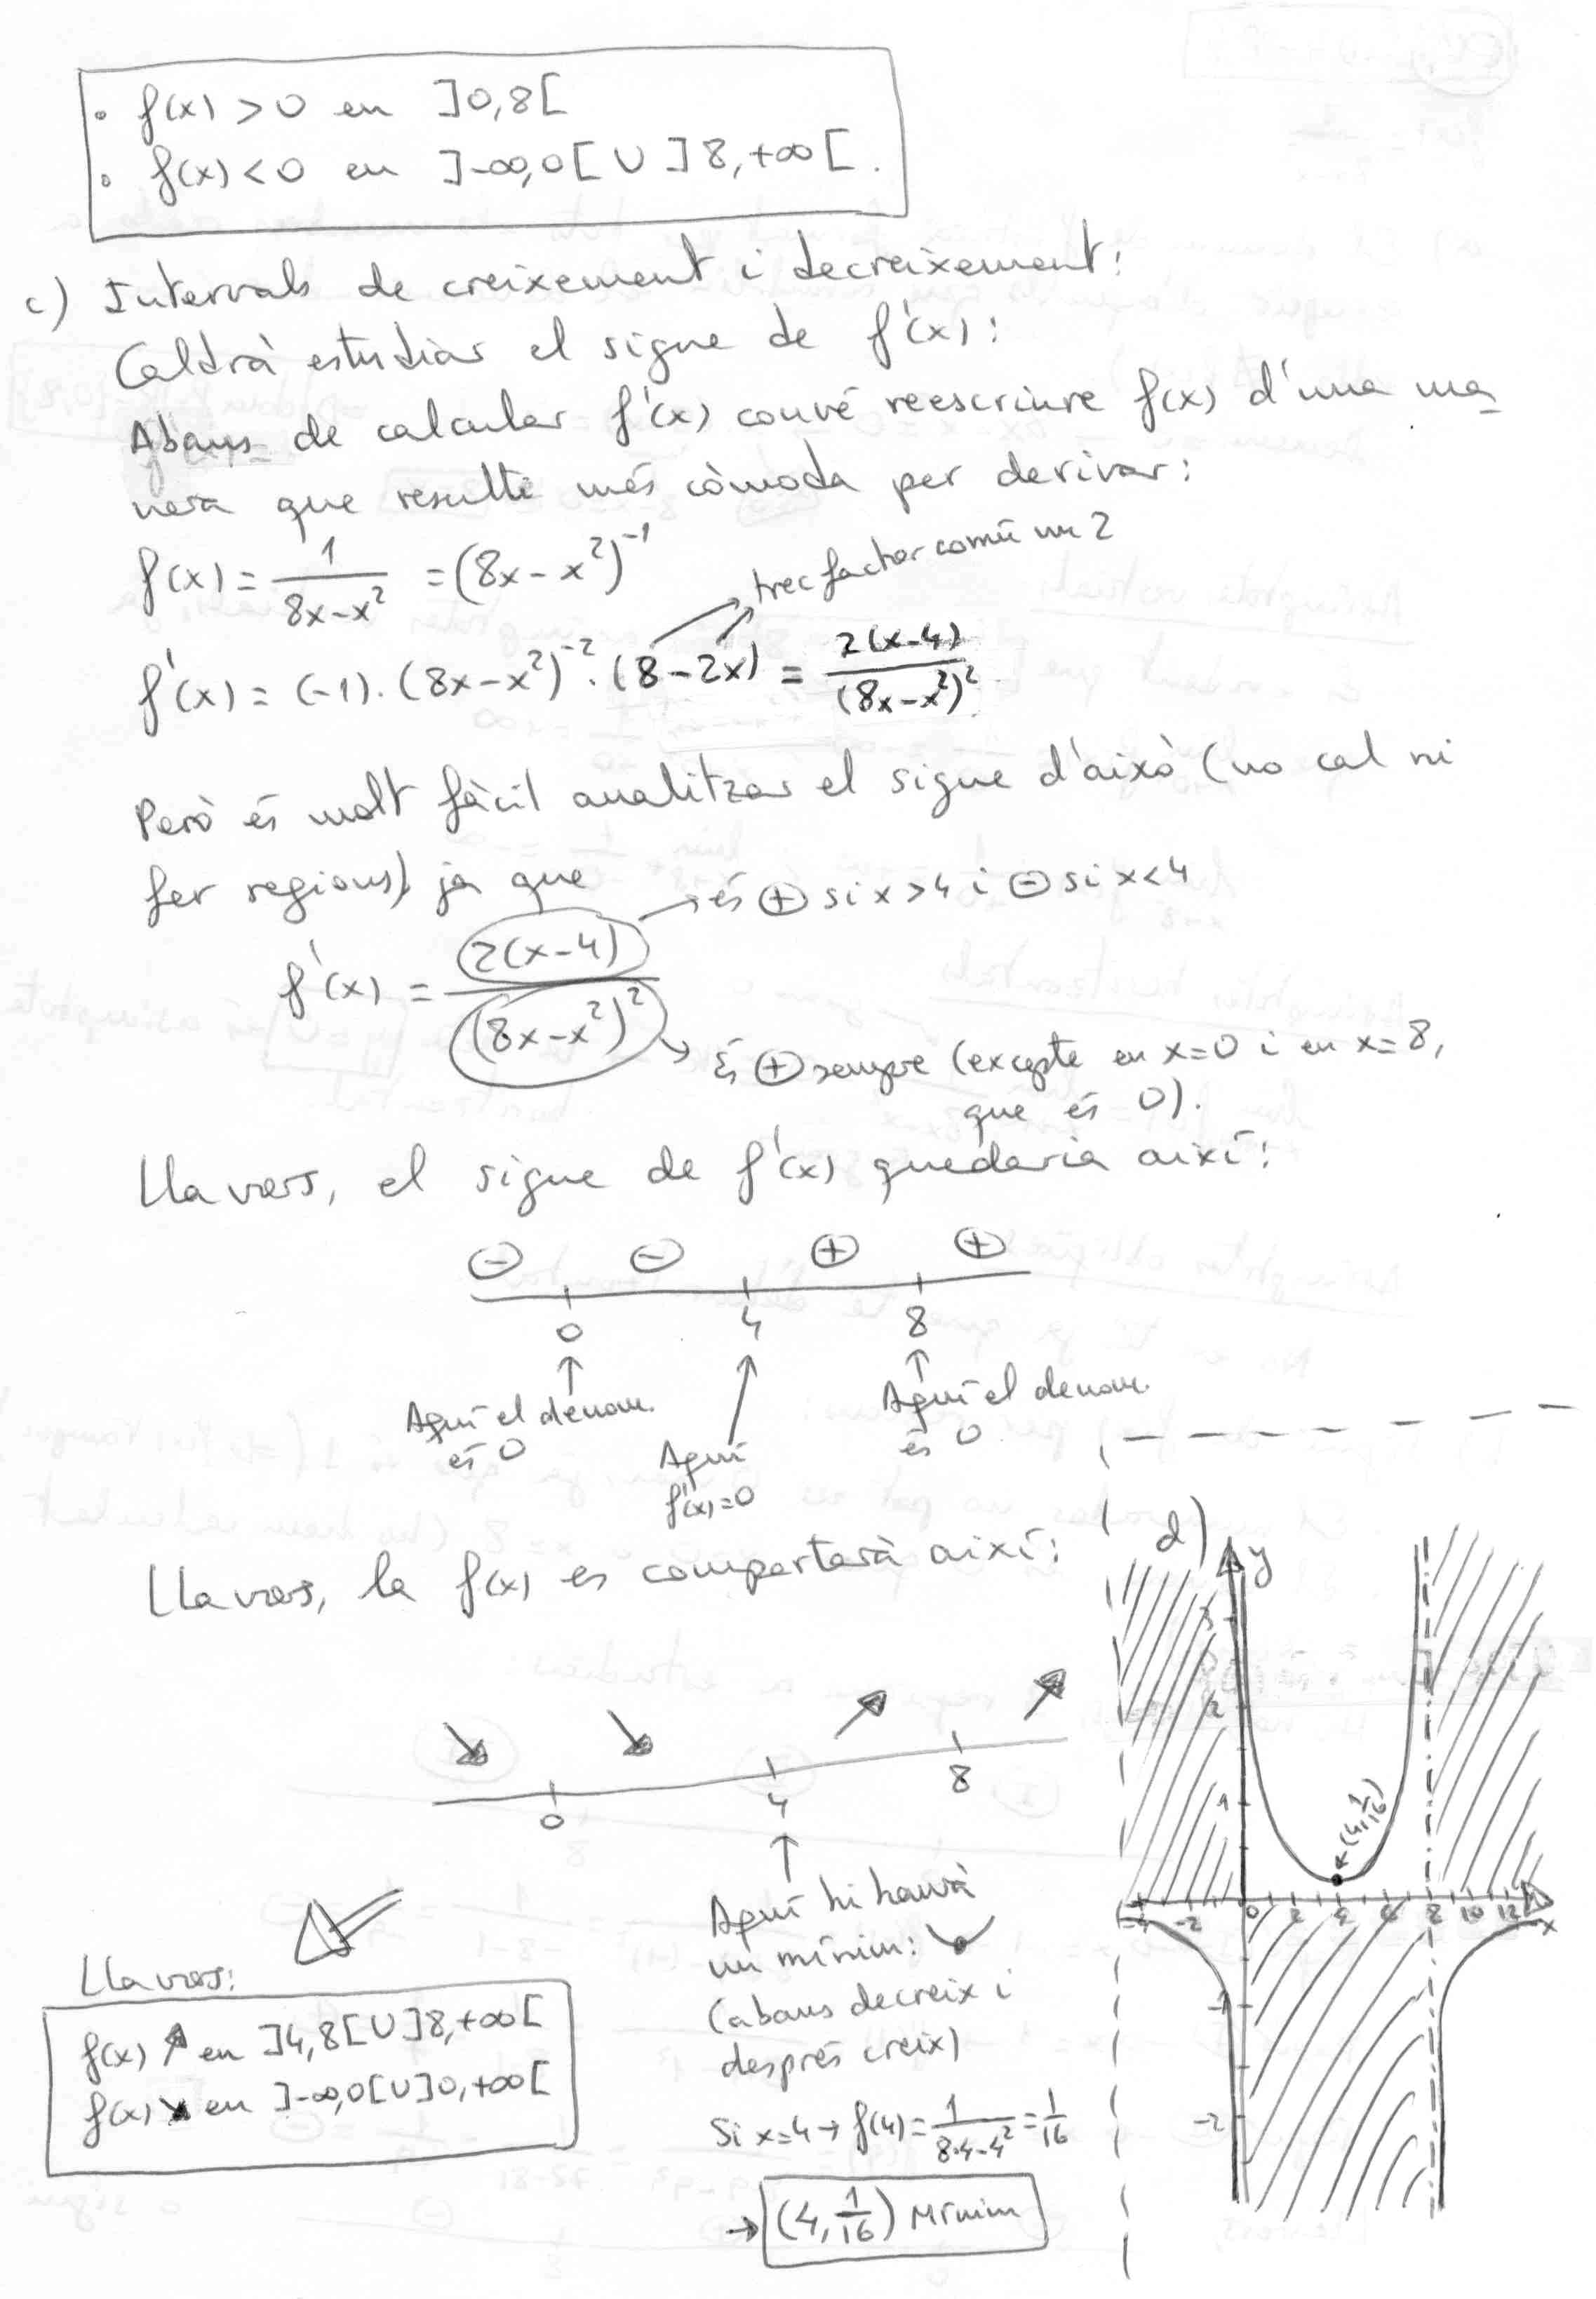 • f(x) > 0 en ]0,8[
• f(x) < 0 en ]-∞,0[ ∪ ]8,+∞[.
c) Intervals de creixement i decreixement:
Caldrà estudiar el signe de f'(x):
Abans de calcular f'(x) convé reescriure f(x) d'una ma-
nera que resulti més còmoda per derivar:
f(x) = 1/(8x-x²) = (8x-x²)⁻¹
trec factor comú un 2
f'(x) = (-1)·(8x-x²)⁻²·(8-2x) = 2(x-4)/(8x-x²)²
Però és molt fàcil analitzar el signe d'això (no cal ni
fer regions) ja que
és ⊕ si x>4 i ⊖ si x<4
f'(x) = 2(x-4)/(8x-x²)²
És ⊕ sempre (excepte en x=0 i en x=8,
que és 0).
Llavors, el signe de f'(x) quedaria així:
⊖ ⊖ ⊕ ⊕
0 4 8
↑ ↑ ↑
Aquí el denom.
és 0
Aquí
f'(x)=0
Aquí el denom.
és 0
Llavors, la f(x) es comportarà així:
↘ ↘ ↗ ↗
0 4 8
↑
Aquí hi haurà
un mínim:
(abans decreix i
després creix)
Si x=4 → f(4) = 1/(8·4-4²) = 1/16
→ (4, 1/16) Mínim
Llavors:
f(x) ↗ en ]4,8[ ∪ ]8,+∞[
f(x) ↘ en ]-∞,0[ ∪ ]0,+∞[
d)
y
3
2
1
(4, 1/16)
-4 -2 0 2 4 6 8 10 12
x
-1
-2